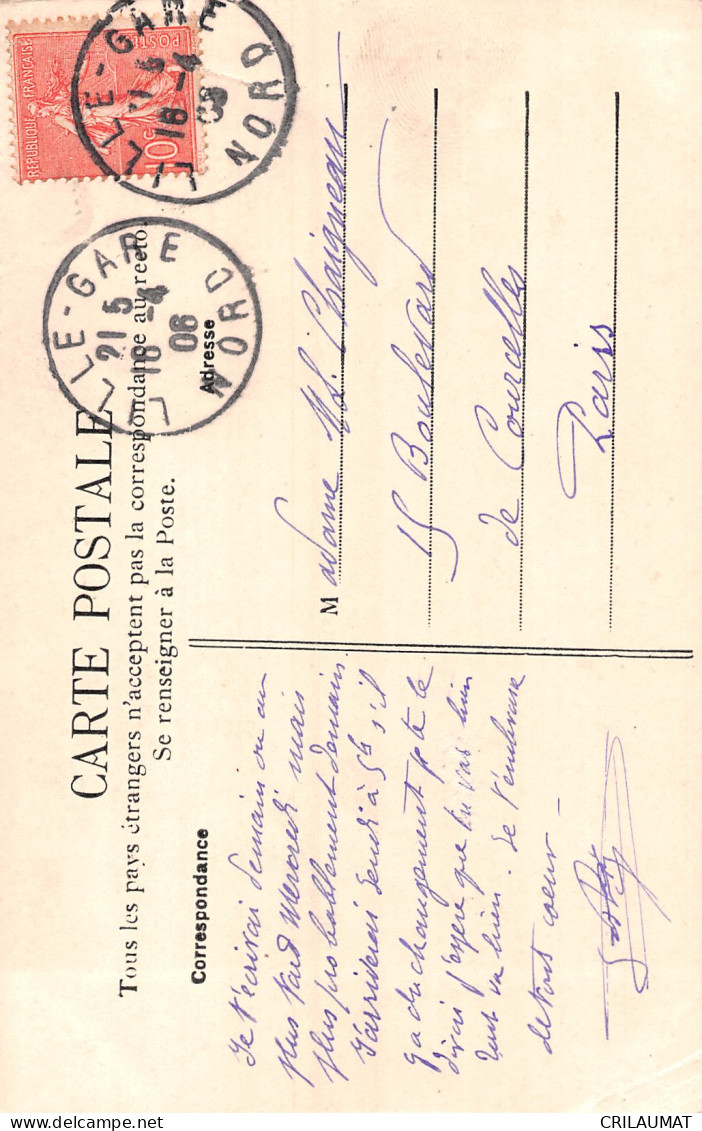 CARTE POSTALE
Tous les pays étrangers n'acceptent pas la correspondance au recto.
Se renseigner à la Poste.
Correspondance
Adresse
Je t'écrirai demain ou au
plus tard Mercredi mais
plus probablement demain.
J'arriverai Jeudi à 5h s'il
y a du changement je te le
dirai j'espère que tu vas bien
tout va bien. Je t'embrasse
de tout coeur —
Madame M L. Chaigneau
15 Boulevard
de Courcelles
Paris
REPUBLIQUE FRANÇAISE
POSTES
10c
LILLE-GARE
21 5
16 -4
06
NORD
LILLE-GARE
21 5
16 -4
06
NORD
delcampe.net
CRILAUMAT